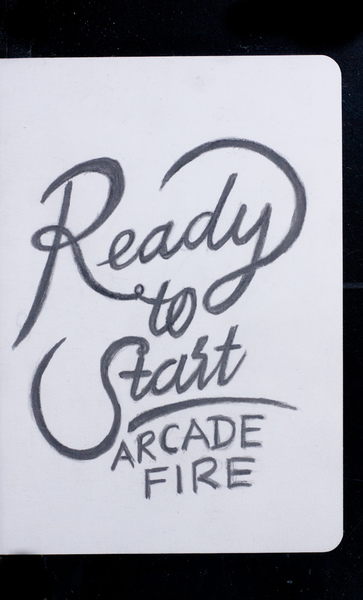 Ready
to
Start
ARCADE
FIRE